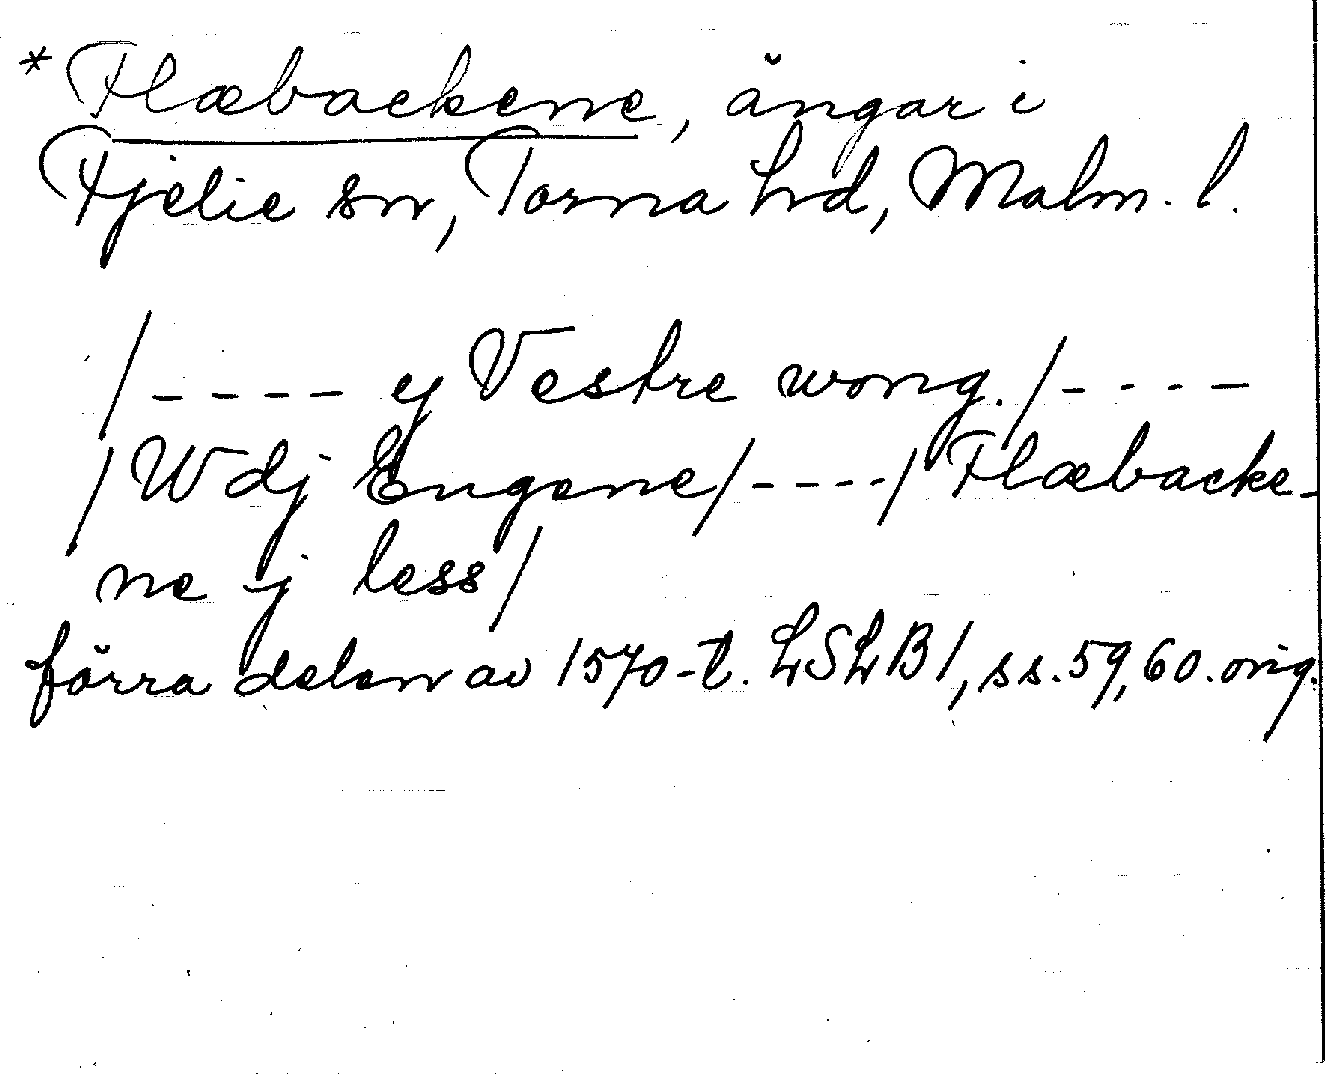 *Flæbackene, ängar i
Fjelie sn, Torna hd, Malm. l.
/---- ej Vestre wong./----
/Wdj Engene/----/Flæbacke-
ne ij less/
förra delen av 1570-t. LSLB1, ss.59,60.orig.